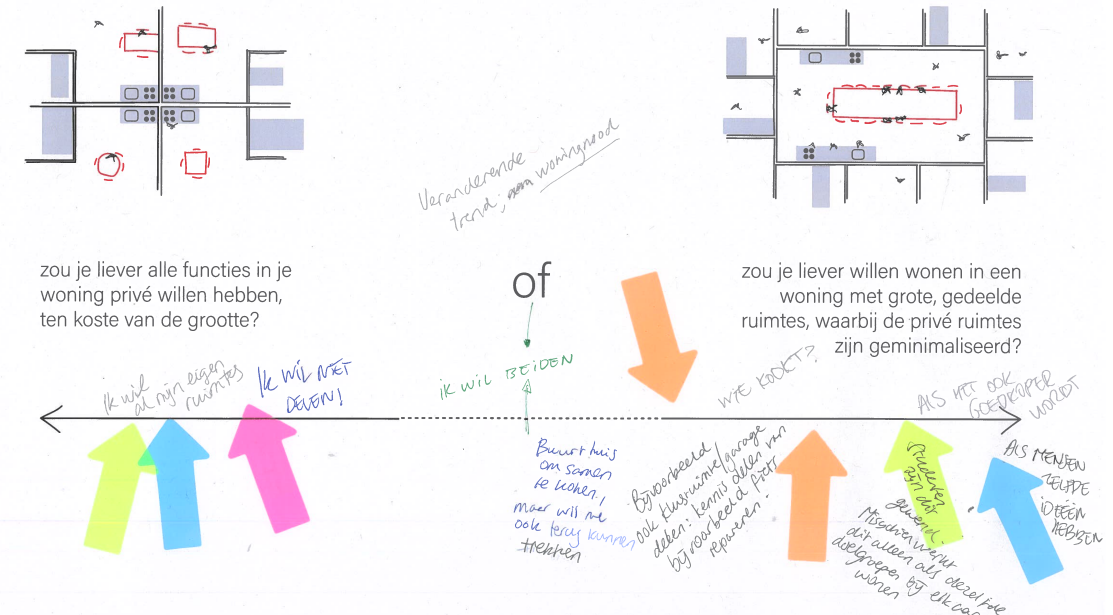 Veranderende
trend; woningnood
zou je liever alle functies in je
woning privé willen hebben,
ten koste van de grootte?
of
zou je liever willen wonen in een
woning met grote, gedeelde
ruimtes, waarbij de privé ruimtes
zijn geminimaliseerd?
ik wil
al mijn eigen
ruimtes
Ik WIL NIET
DELEN!
ik WIL BEIDEN
WIE KOOKT?
ALS HET OOK
GOEDKOPER
WORDT
Buurthuis
om samen
te koken,
maar wil me
ook terug kunnen
trekken
Bijvoorbeeld
ook klusruimte/garage
delen: kennis delen van
bijvoorbeeld fiets
repareren!
studenten
zijn dit
gewend.
Misschien werkt
dit alleen als dezelfde
doelgroepen bij elkaar
wonen
ALS MENSEN
ZELFDE
IDEEËN
HEBBEN